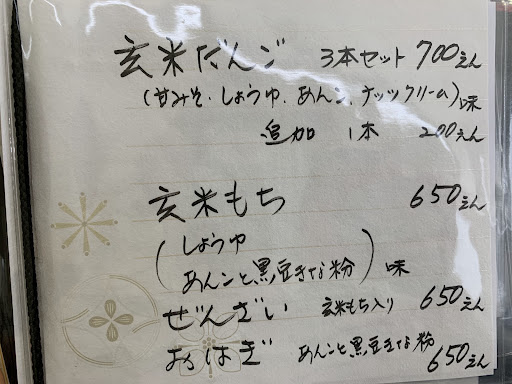 玄米だんご 3本セット 700えん
(甘みそ・しょうゆ・あんこ・ナッツクリーム)味
追加 1本 200えん
玄米もち 650えん
(しょうゆ
あんこと黒豆きな粉)味
ぜんざい 玄米もち入り 650えん
おはぎ あんこと黒豆きな粉 650えん